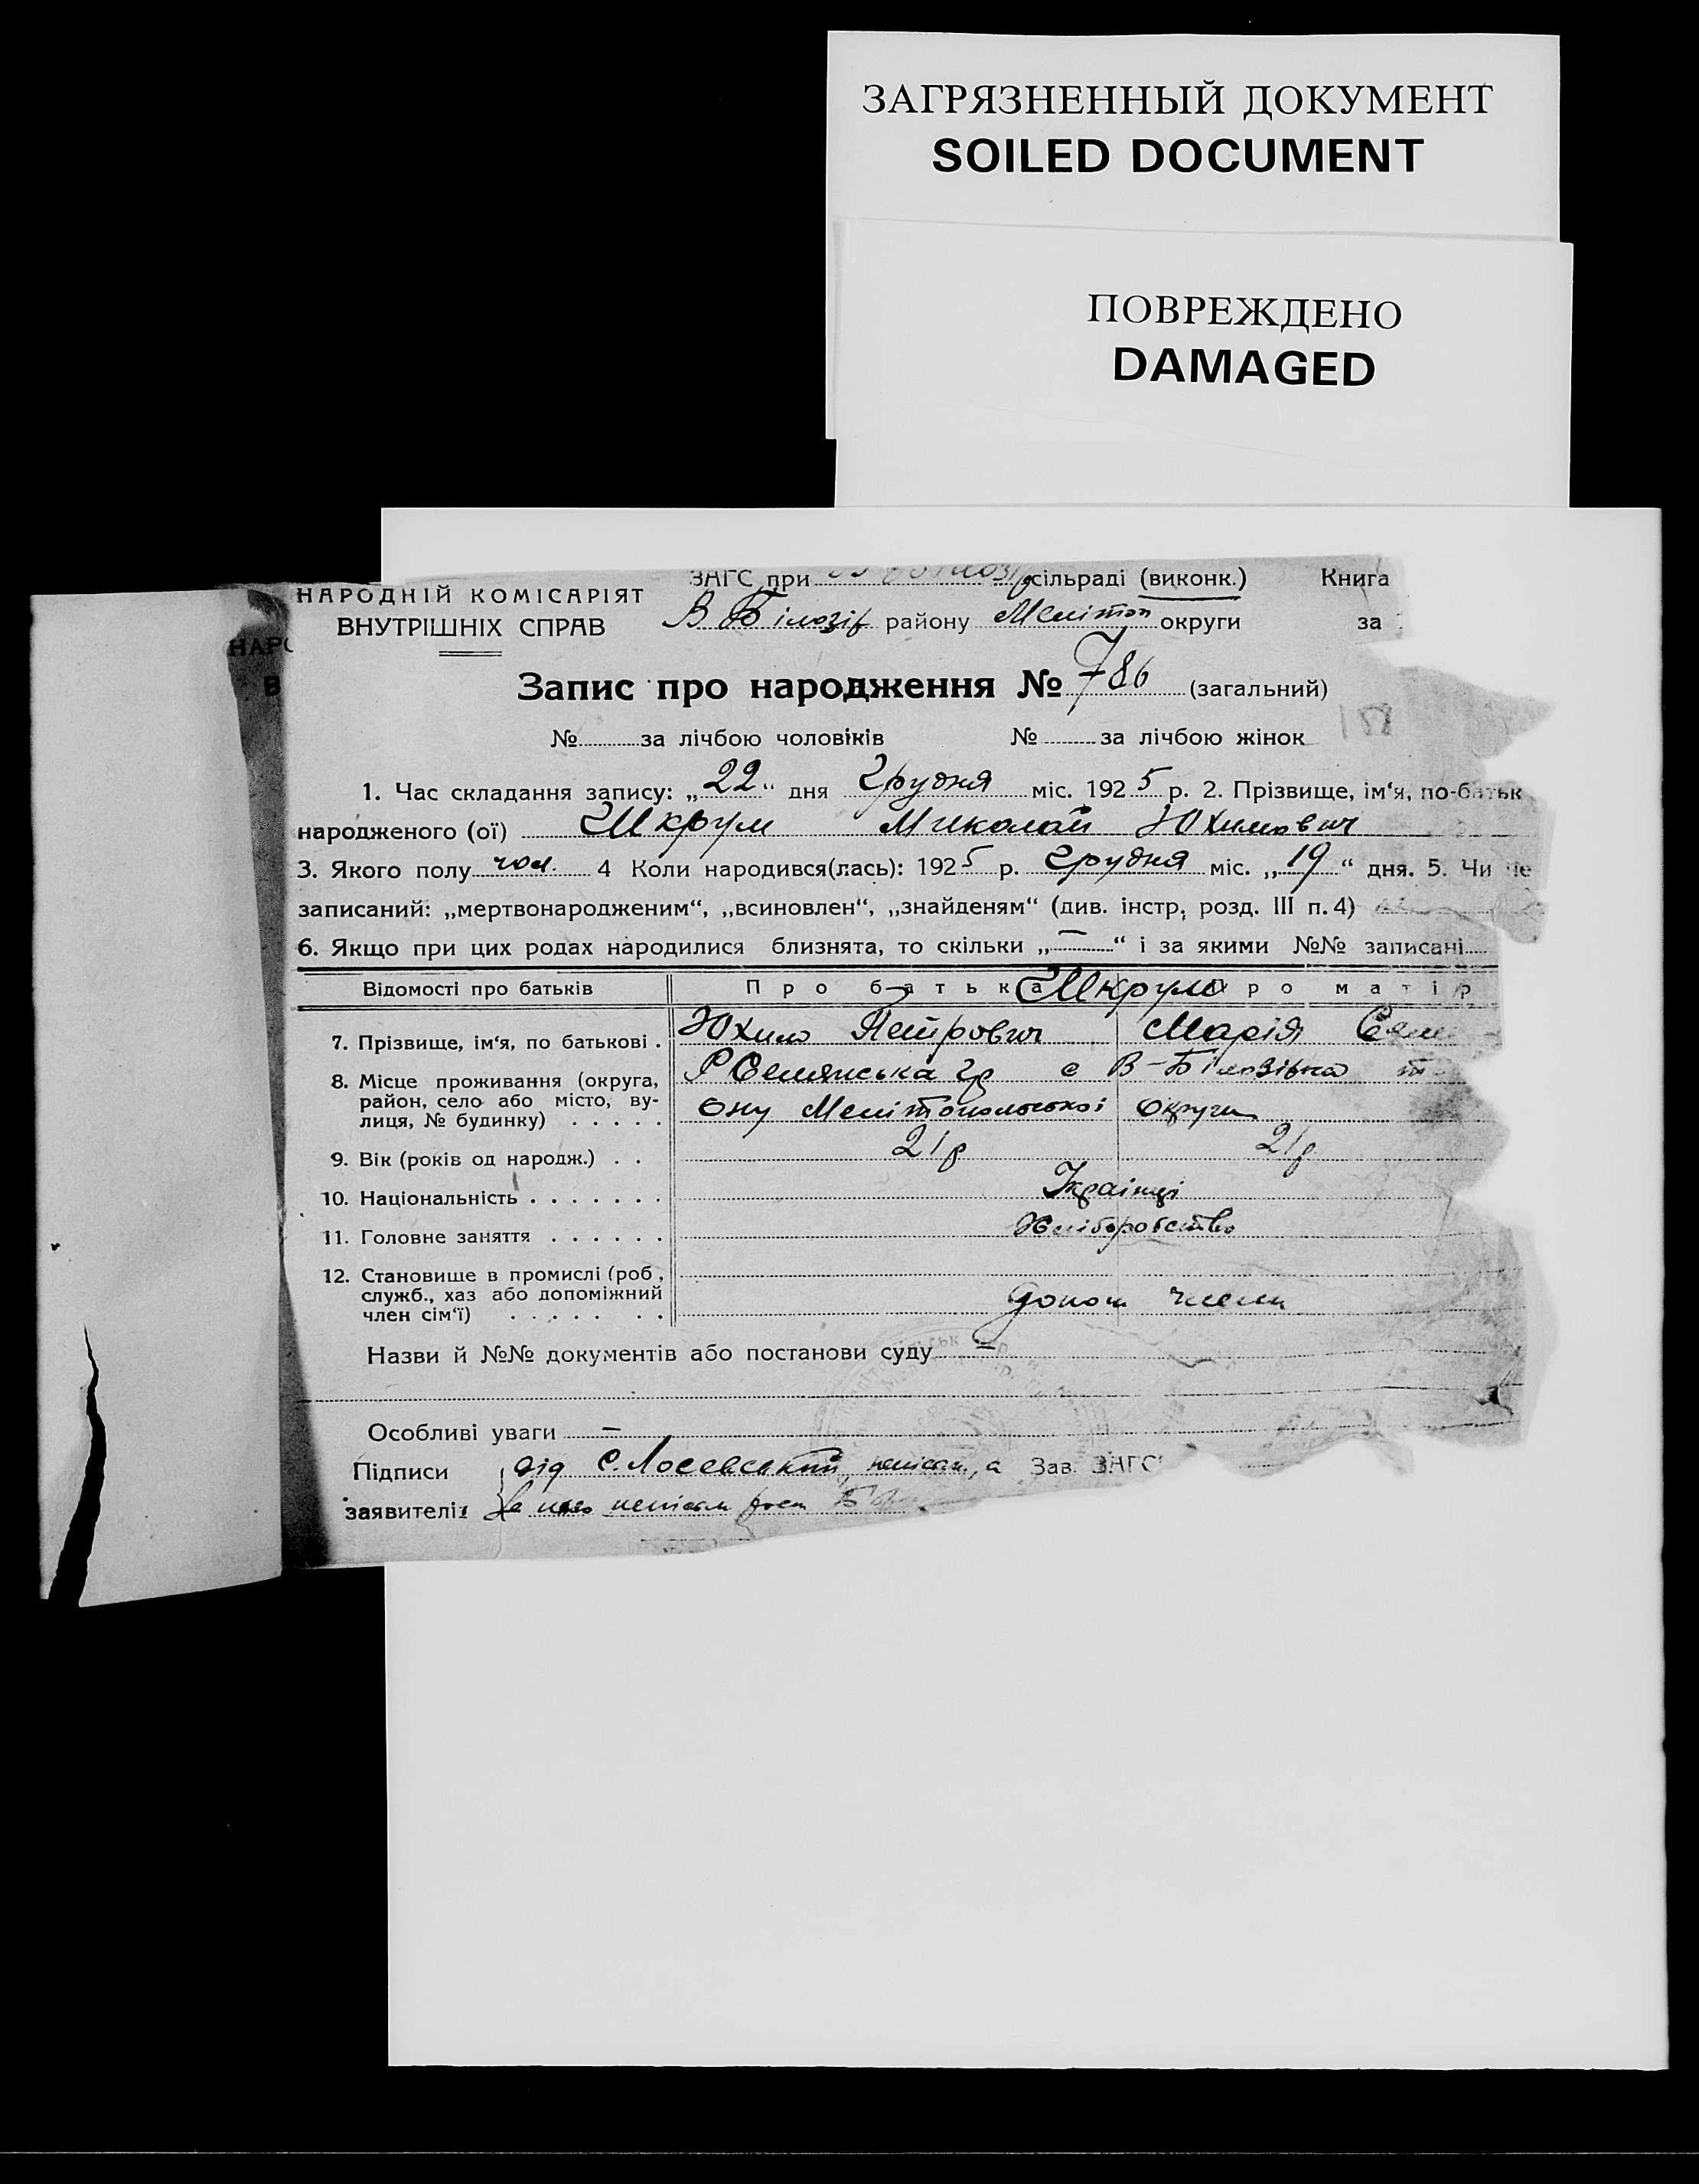 ЗАГРЯЗНЕННЫЙ ДОКУМЕНТ
SOILED DOCUMENT
ПОВРЕЖДЕНО
DAMAGED
НАРОДНІЙ КОМІСАРІЯТ
ВНУТРІШНІХ СПРАВ
ЗАГС при сільраді (виконк.) Книга
В Білозір району Меліто́п округи за
Запис про народження № 786 (загальний)
№ за лічбою чоловіків № за лічбою жінок
1. Час складання запису: „22“ дня Грудня міс. 1925 р. 2. Прізвище, ім‘я, по-батьк
народженого (ої) Шкрум Миколай Юхимович
3. Якого полу чол. 4 Коли народився(лась): 1925 р. Грудня міс. „19“ дня. 5. Чи не
записаний: „мертвонародженим“, „всиновлен“, „знайденям“ (див. інстр, розд. III п. 4)
6. Якщо при цих родах народилися близнята, то скільки „—“ і за якими №№ записані
Відомості про батьків Про батька Шкрум Про матір
7. Прізвище, ім‘я, по батькові. Юхим Петрович Марія
8. Місце проживання (округа, район, село або місто, вулиця, № будинку) с В-Білозірка
Мелітопольської Округи
9. Вік (років од народж.) 21 р 21 р
10. Національність Українці
11. Головне заняття Хліборобство
12. Становище в промислі (роб, служб., хаз або допоміжний член сім‘ї) допом члени
Назви й №№ документів або постанови суду —
Особливі уваги —
Підписи дід С. Лосевський, неписм, а Зав. ЗАГС
заявителів За него неписм роспБ
НАРС
В